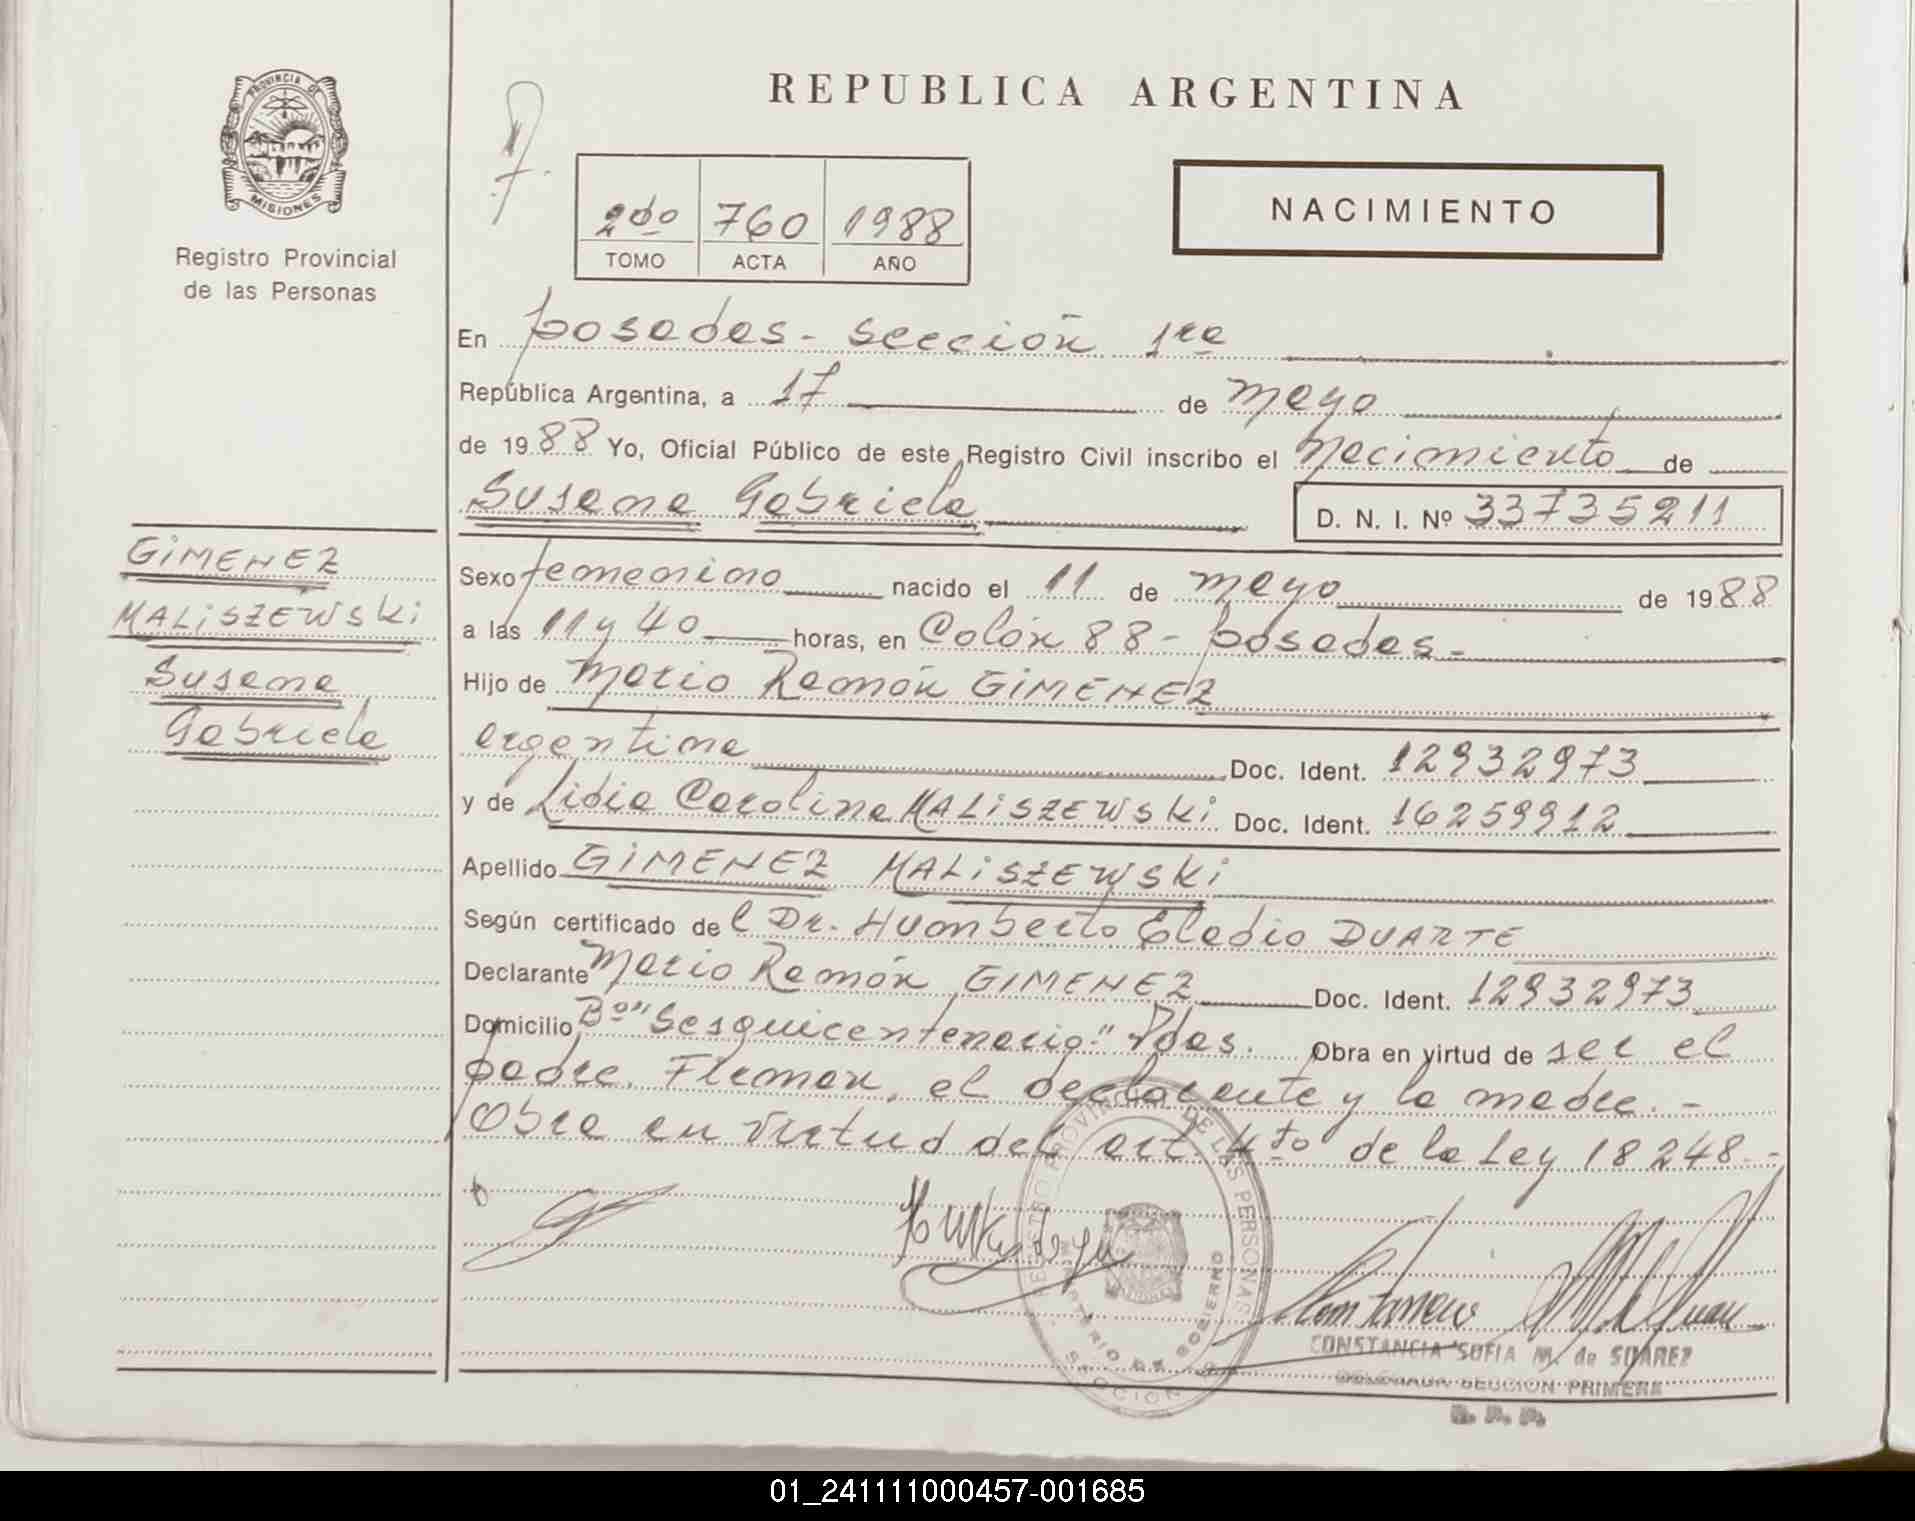 PROVINCIA DE
MISIONES
Registro Provincial
de las Personas
REPUBLICA ARGENTINA
2do 760 1988
TOMO ACTA AÑO
NACIMIENTO
En Posadas - Sección 1ra
República Argentina, a 17 de Mayo
de 1988 Yo, Oficial Público de este Registro Civil inscribo el Nacimiento de
Susana Gabriela D. N. I. Nº 33735211
GIMENEZ
MALISZEWSKI
Susana
Gabriela
Sexo femenino nacido el 11 de Mayo de 1988
a las 11 y 40 horas, en Colón 88 - Posadas.-
Hijo de Mario Ramón GIMENEZ
argentina Doc. Ident. 12932973
y de Lidia Carolina MALISZEWSKI Doc. Ident. 16259912
Apellido GIMENEZ MALISZEWSKI
Según certificado del Dr. Humberto Eladio DUARTE
Declarante Mario Ramón GIMENEZ Doc. Ident. 12932973
Domicilio Bº "Sesquicentenario" Pdas. Obra en virtud de ser el
padre. Firman, el declarante y la madre. -
Obra en virtud del art. 4to de la Ley 18248.-
REGISTRO PROVINCIAL DE LAS PERSONAS
MINISTERIO DE GOBIERNO
SECCION
CONSTANCIA SOFIA M. de SUAREZ
DELEGADA SECCION PRIMERA
R. P. P.
01_241111000457-001685